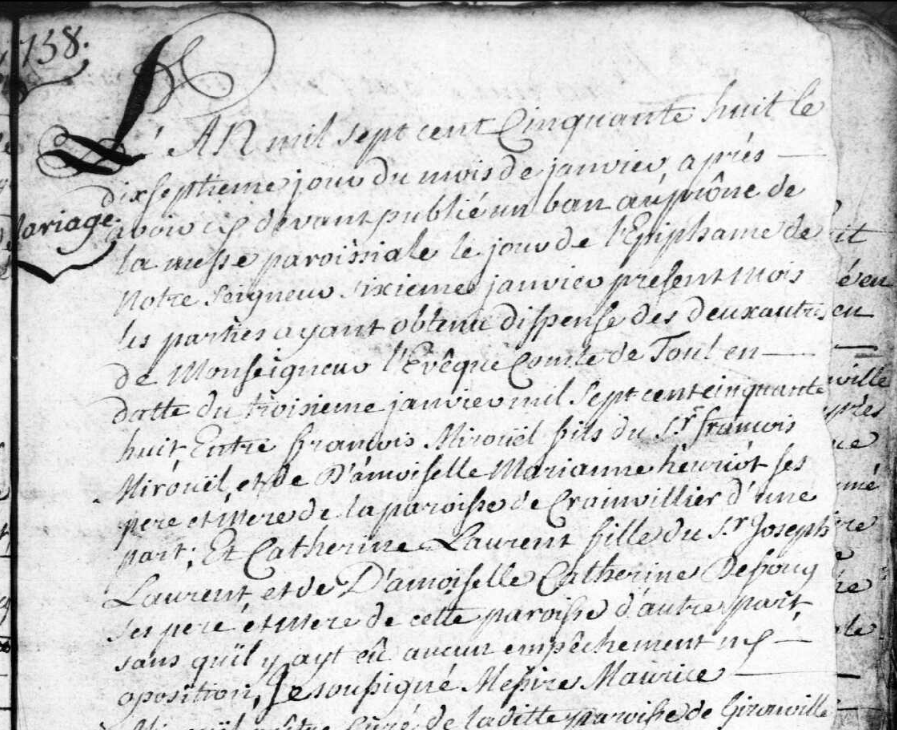 1758.
L'AN mil sept cent Cinquante huit le
dixseptieme jour du mois de janvier, après
Mariage.
avoir cy devant publié un ban au prône de
la messe paroissiale le jour de l'Epiphanie de
Notre Seigneur sixieme janvier present mois
les parties ayant obtenu dispense des deux autres
de Monseigneur l'Evêque Comte de Toul en
datte du troisieme janvier mil sept cent cinquante
huit Entre françois Mirouël fils du S.r françois
Mirouël, et de D'amoiselle Marianne henriot ses
pere et Mere de la paroisse de Crainvillier d'une
part; Et Catherine Laurent fille du S.r Joseph
Laurent, et de D'amoiselle Catherine
ses pere et Mere de cette paroisse d'autre part,
sans qu'il y ayt eû aucun empêchement ny
oposition, Je soussigné Messire Maurice
Curé de laditte paroisse de Gironville